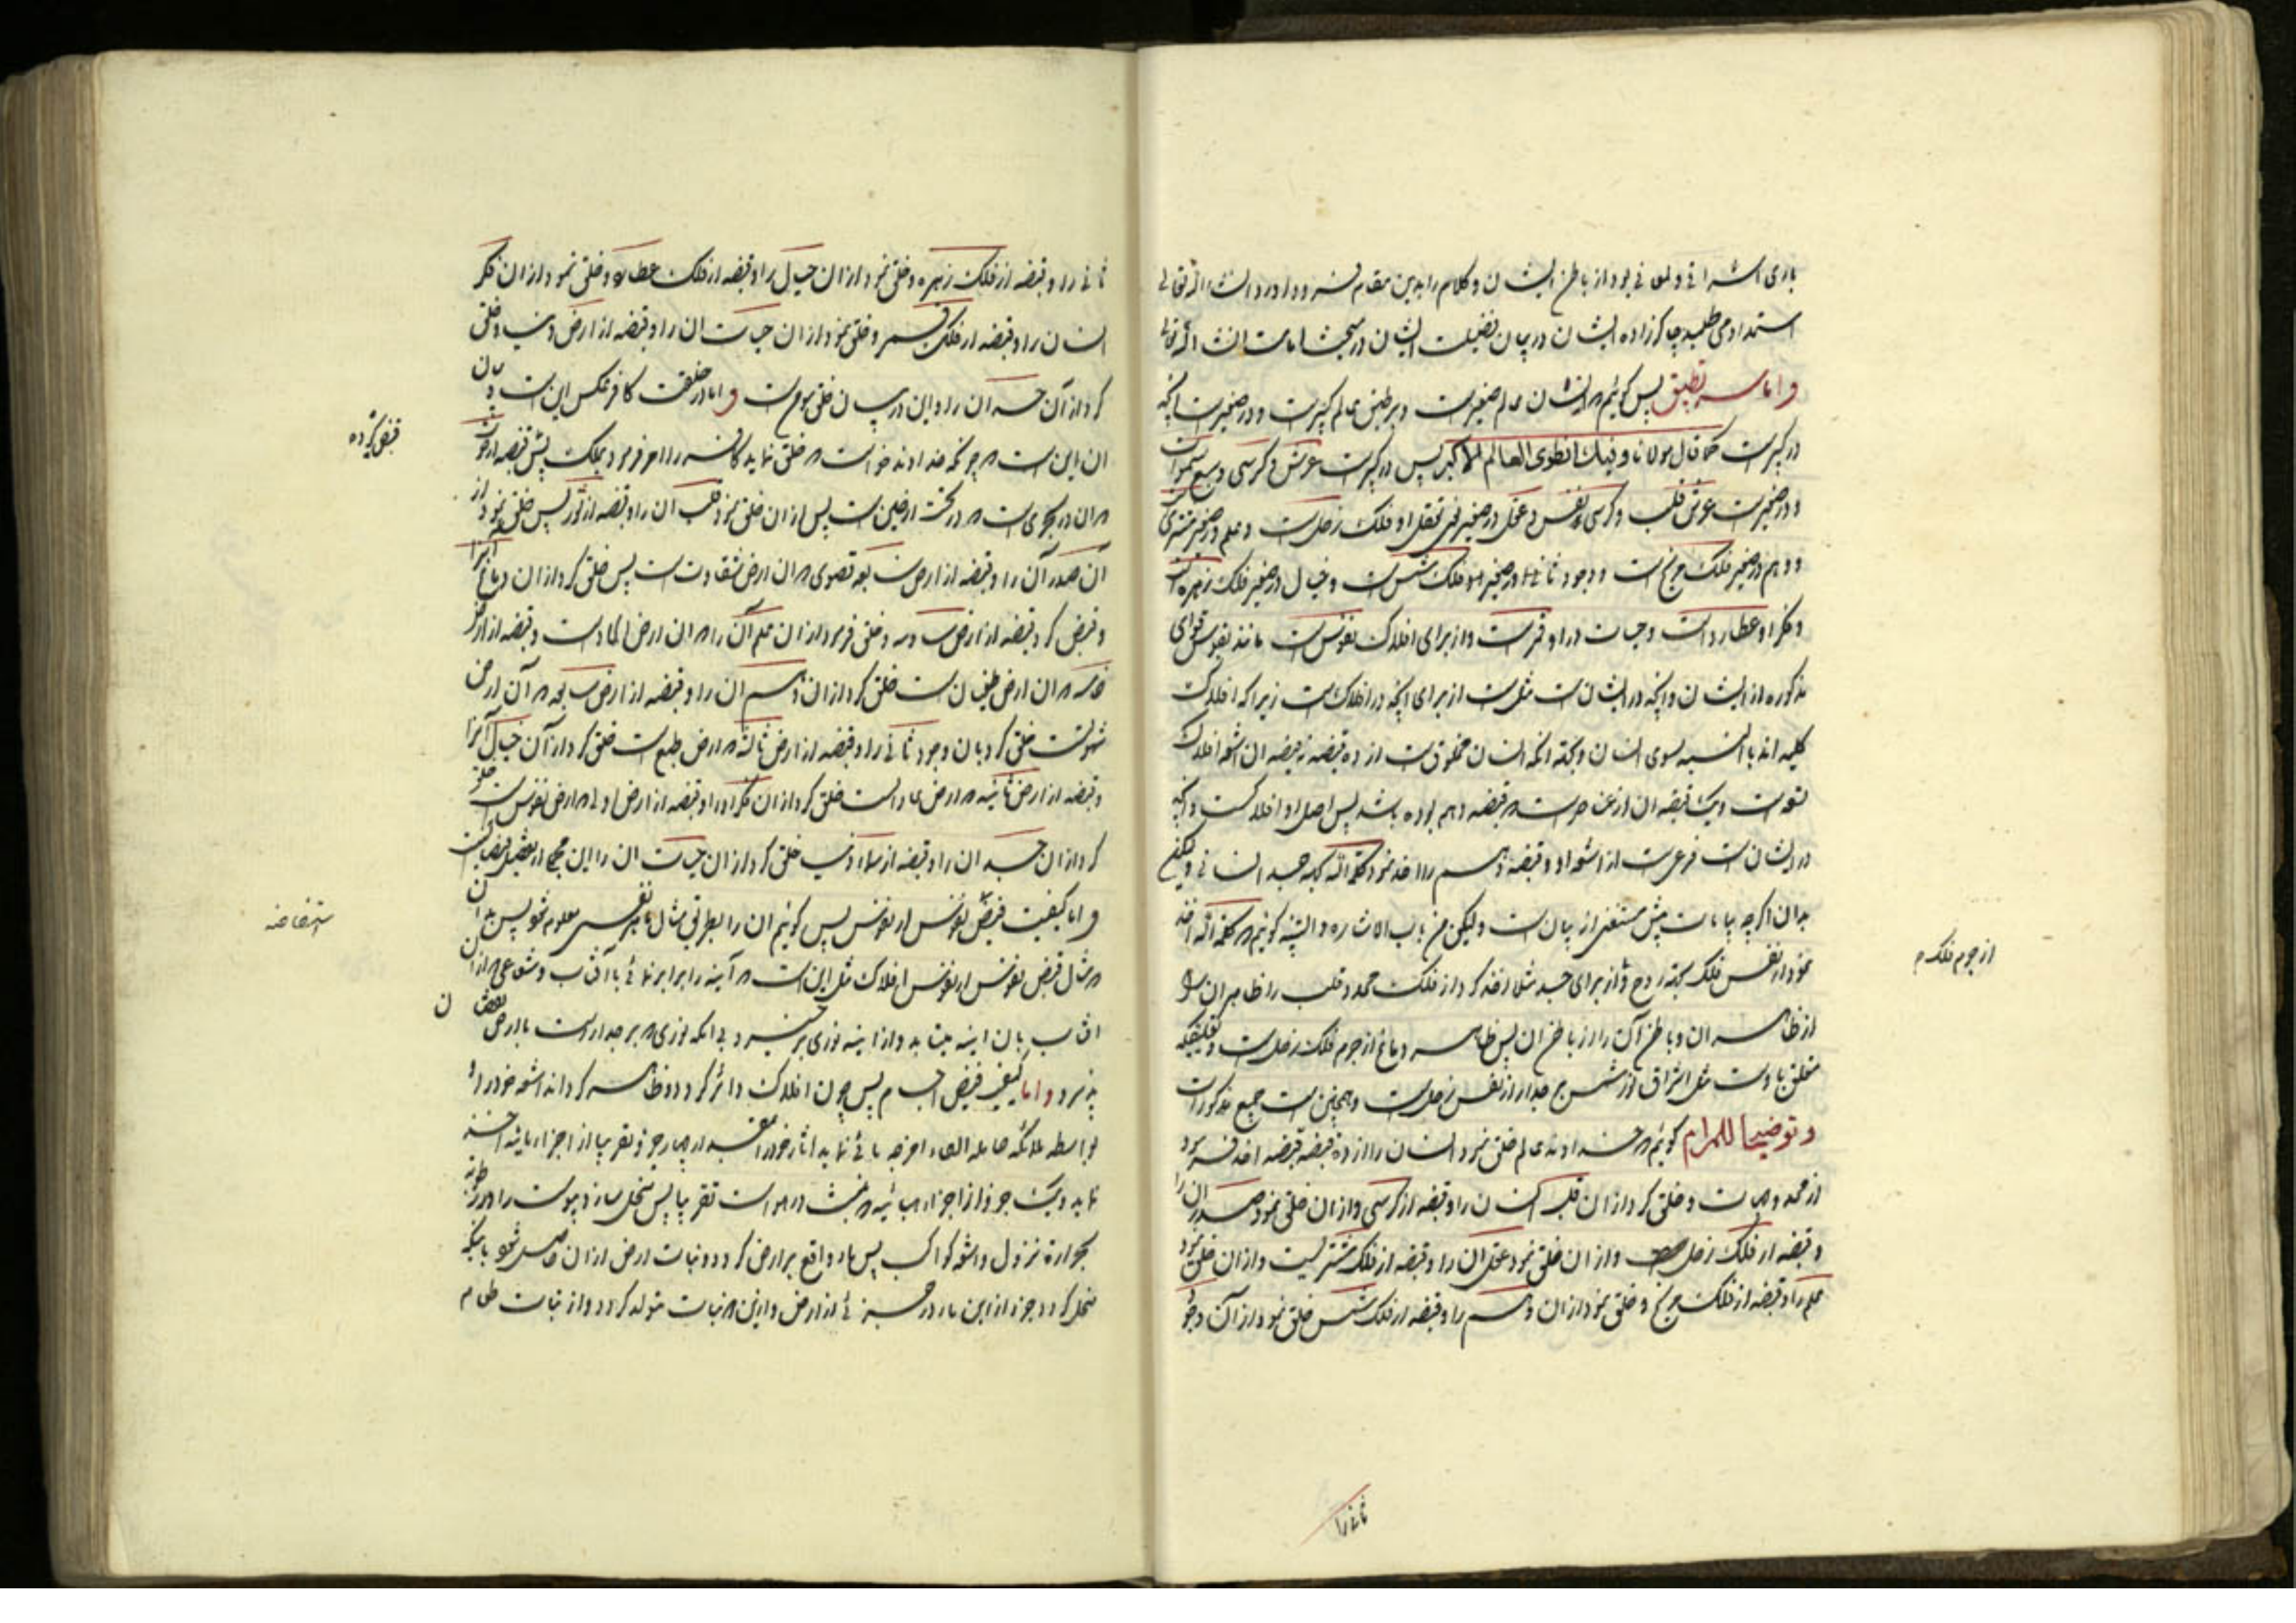 باری اشراقی و لمعانی بود از باطن ایشان و کلام را بدین مقام فرود آورد انشاء الله تعالی
استمداد می طلبد چاکرزاده ایشان در بیان فضیلت ایشان در مبحث امامت انشاء الله تعالی
و اما سر تطبیق پس گوئیم که انسان عالم صغیر است و بر طبق عالم کبیر است و در صغیر است آنچه
در کبیر است کما قال مولانا و فیک انطوی العالم الاکبر پس در کبیر است عرش و کرسی و سبع سموات
و در صغیر است عرش قلب و کرسی نفس و عقل در صغیر فلک زحل است و علم در صغیر مشتری
و وهم در صغیر فلک مریخ است و وجود ثانی در صغیر فلک شمس است و خیال در صغیر فلک زهره است
و فکر او عطارد است و حیات در او قمر است و از برای افلاک نفوس است مانند نفوس قوای
مذکوره از ایشان و آنچه در ایشان است مثل است از برای آنچه در افلاک است زیرا که افلاک
کلیه اند بالنسبه بسوی انسان و بجهة آنکه انسان مخلوق است از ده قبضه نه قبضه آن اشعه افلاک
تسعه است و یک قبضه آن از عناصر است که قبضه دهم بوده باشد پس اصل او افلاک است و آنچه
در ایشان است فرعی است از اشعه او و قبضه دهم را اخذ نمود کلمة الله بجهة جسد انسانی و کیفیت
بدان اگر چه بیانات پیش مستغنی از بیان است ولیکن من باب الاشاره و التنبیه گوئیم که کلمة الله اخذ
نمود از نفس فلک بجهة روح و از برای جسد مثلا اخذ کرد از فلک محدد قلب را ظاهر آن را
از ظاهر آن و باطن آن را از باطن آن پس ظاهر دماغ از جرم فلک زحل است و تعقلیکه
متعلق باوست مثل اشراق نور شمس بر جدار از نفس زحل است و همچنین است جمیع مذکورات
و توضیحا للمرام گوئیم که خداوند عالم خلق نمود انسان را از ده قبضه قبضه اخذ فرمود
از محدد جهات و خلق کرد از آن قلب انسان را و قبضه از کرسی و از آن خلق نمود صدر آن را
و قبضه از فلک زحل و از آن خلق نمود عقل آن را و قبضه از فلک مشتریست و از آن خلق نمود
علم را و قبضه از فلک مریخ و خلق نمود از آن وهم را و قبضه از فلک شمس خلق نمود از آن وجود
از جرم فلک م
ثانی را
ثانی را و قبضه از فلک زهره و خلق نمود از آن خیال را و قبضه از فلک عطارد و خلق نمود از آن فکر
انسان را و قبضه از فلک قمر و خلق نمود از آن حیات آن را و قبضه از ارض دنیا و خلق
کرد از آن جسد آن را و این در بیان خلق مؤمن است و اما در خلقت کافر عکس این است و بیان
آن این است که چونکه خداوند خواست که خلق نماید کافر را امر فرمود بملک پس قبضه از حوت
که آن در بحری است که در تحت ارضین است پس از آن خلق نمود قلب آن را و قبضه از ثور پس خلق نمود از
آن صدر آن را و قبضه از ارض سابعه قصوی که آن ارض شقاوت است پس خلق کرد از آن دماغ آنرا
و قبض کرد قبضه از ارض سادسه و خلق فرمود از آن علم آن را که آن ارض الحاد است و قبضه از ارض
خامسه که آن ارض طغیان است خلق کرد از آن وهم آن را و قبضه از ارض رابعه که آن ارض
شهوتست خلق کرد بآن وجود ثانی را و قبضه از ارض ثالثه که ارض طبع است خلق کرد از آن خیال آنرا
و قبضه از ارض ثانیه که ارض عادات است خلق کرد از آن فکر او را و قبضه از ارض اولی که ارض نفوس است خلق
کرد از آن جسد آن را و قبضه از سماء دنیا خلق کرد از آن حیات آن را این مجمل از تفصیل قبضات است
و اما کیفیت قبض نفوس از نفوس پس گوئیم آن را بطریق مثال تا بر نفس معلوم شود پس بدان
که مثال قبض نفوس از نفوس افلاک مثل این است که آینه را برابر نمائی با آفتاب و شعاعی که از آن
آفتاب بآن آینه میتابد و از آینه نوری بر خیزد بدانکه نوری که بر جدار است یا ارض بعض
پذیرد و اما کیفیت قبض اجسام پس چون افلاک دائر گردد و ظاهر کرداند اشعه خود را
بواسطه ملائکه حامله القاء امزجه بائی نماید آثار خود را بقدر چهار جزو تقریبا از اجزاء مائیه اخذ
نماید و یک جزو از اجزاء هبائیه که منبث در هواست تقریبا پس منحل سازد یبوست را در رطوبة
بحرارة نزول و اشعه کواکب پس ماء واقع بر ارض گردد و نبات ارض از آن حاصل شود باینکه
منحل گردد جزء از این ماء در جزئی از ارض و از این که نبات متولد گردد و از نبات طعام
قبض کرده
استفاضه